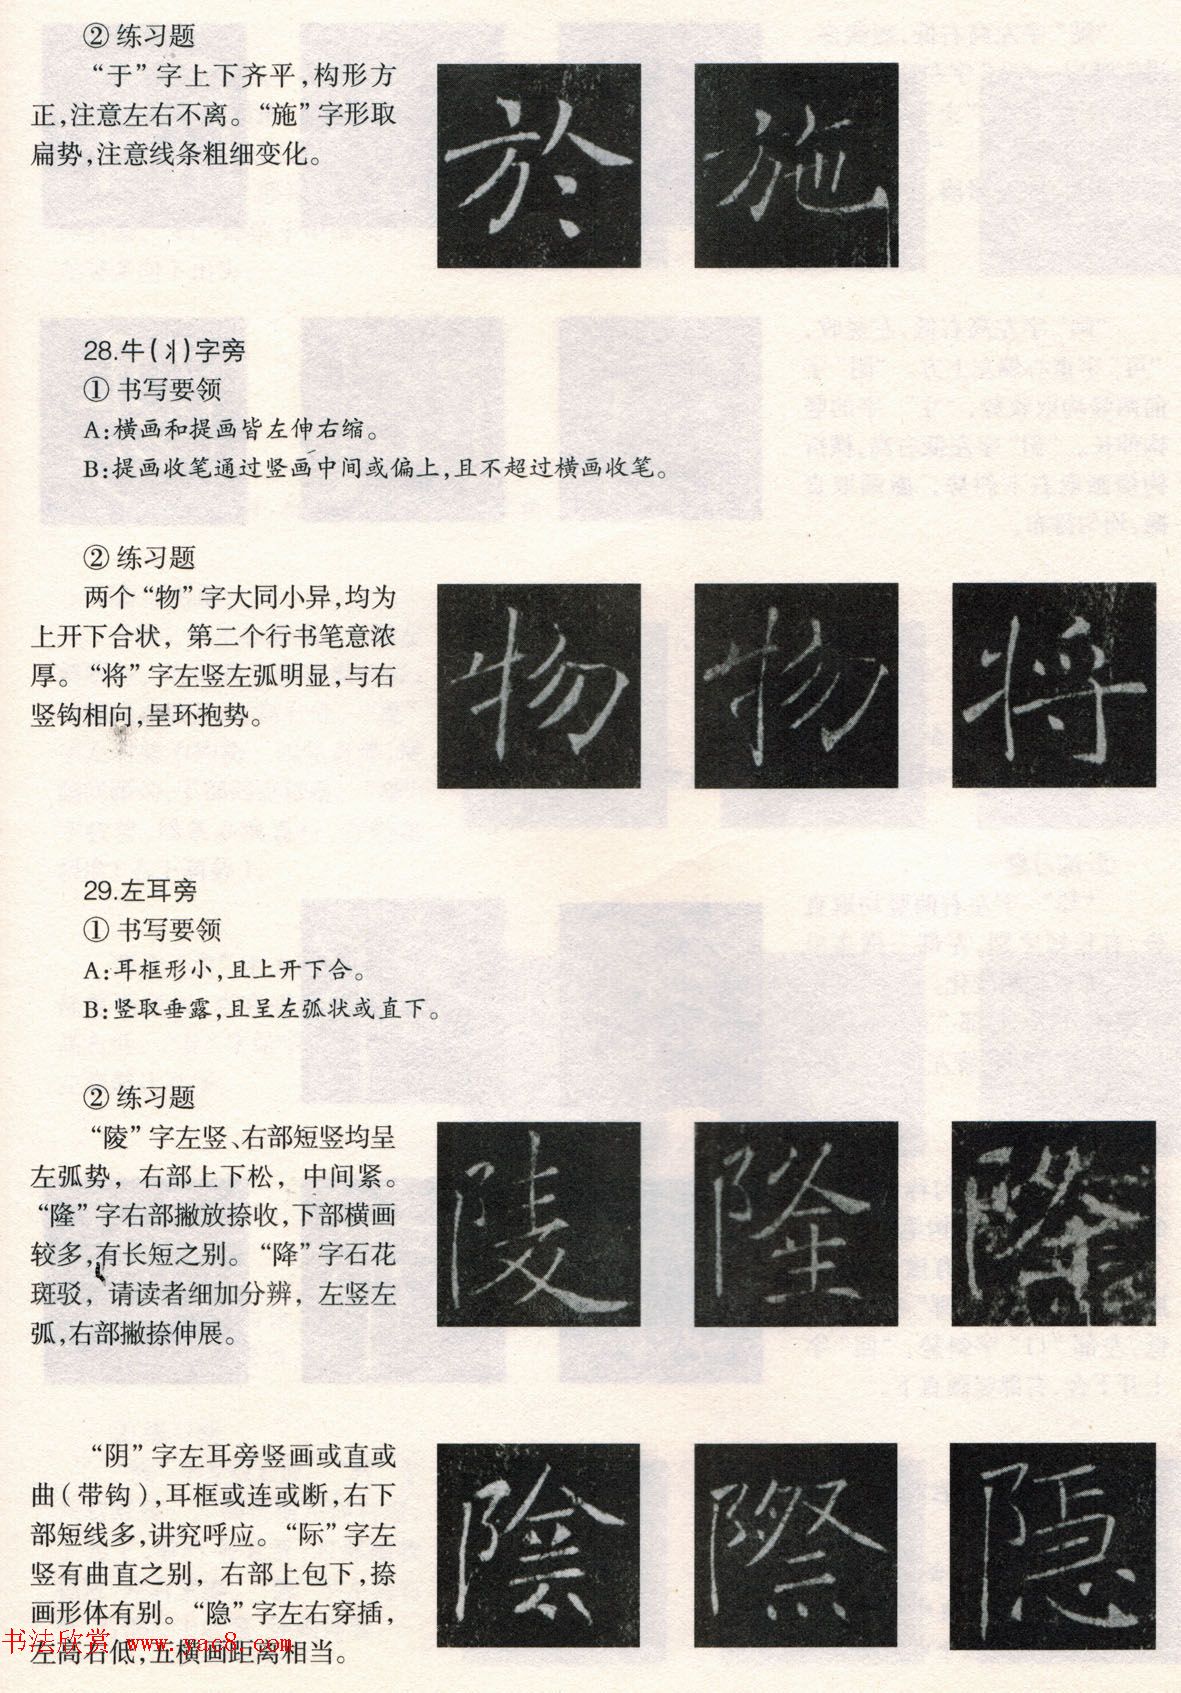 ② 练习题
“于”字上下齐平,构形方
正,注意左右不离。“施”字形取
扁势,注意线条粗细变化。
於 施
28.牛(丬)字旁
① 书写要领
A:横画和提画皆左伸右缩。
B:提画收笔通过竖画中间或偏上,且不超过横画收笔。
② 练习题
两个“物”字大同小异,均为
上开下合状, 第二个行书笔意浓
厚。“将”字左竖左弧明显,与右
竖钩相向,呈环抱势。
物 物 将
29.左耳旁
① 书写要领
A:耳框形小,且上开下合。
B:竖取垂露,且呈左弧状或直下。
② 练习题
“陵”字左竖、右部短竖均呈
左弧势, 右部上下松, 中间紧。
“隆”字右部撇放捺收,下部横画
较多,有长短之别。“降”字石花
斑驳, 请读者细加分辨, 左竖左
弧,右部撇捺伸展。
陵 隆 降
“阴”字左耳旁竖画或直或
曲(带钩),耳框或连或断,右下
部短线多,讲究呼应。“际”字左
竖有曲直之别, 右部上包下,捺
画形体有别。“隐”字左右穿插,
左高右低,五横画距离相当。
陰 際 隱
书法欣赏 www.yac8.com